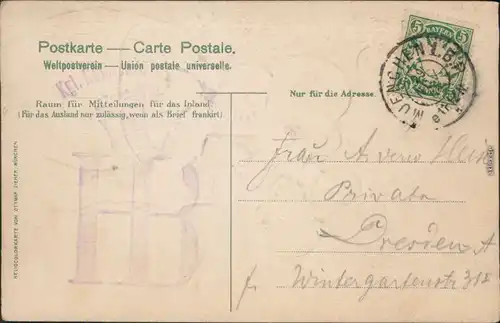 Postkarte — Carte Postale.
Weltpostverein — Union postale universelle.
Kgl.
Raum für Mitteilungen für das Inland.
(Für das Ausland nur zulässig, wenn als Brief frankirt)
Nur für die Adresse.
5 BAYERN 5
MUENCHEN
HB
Frau A verw
Privata
Dresden A
Wintergartenstr